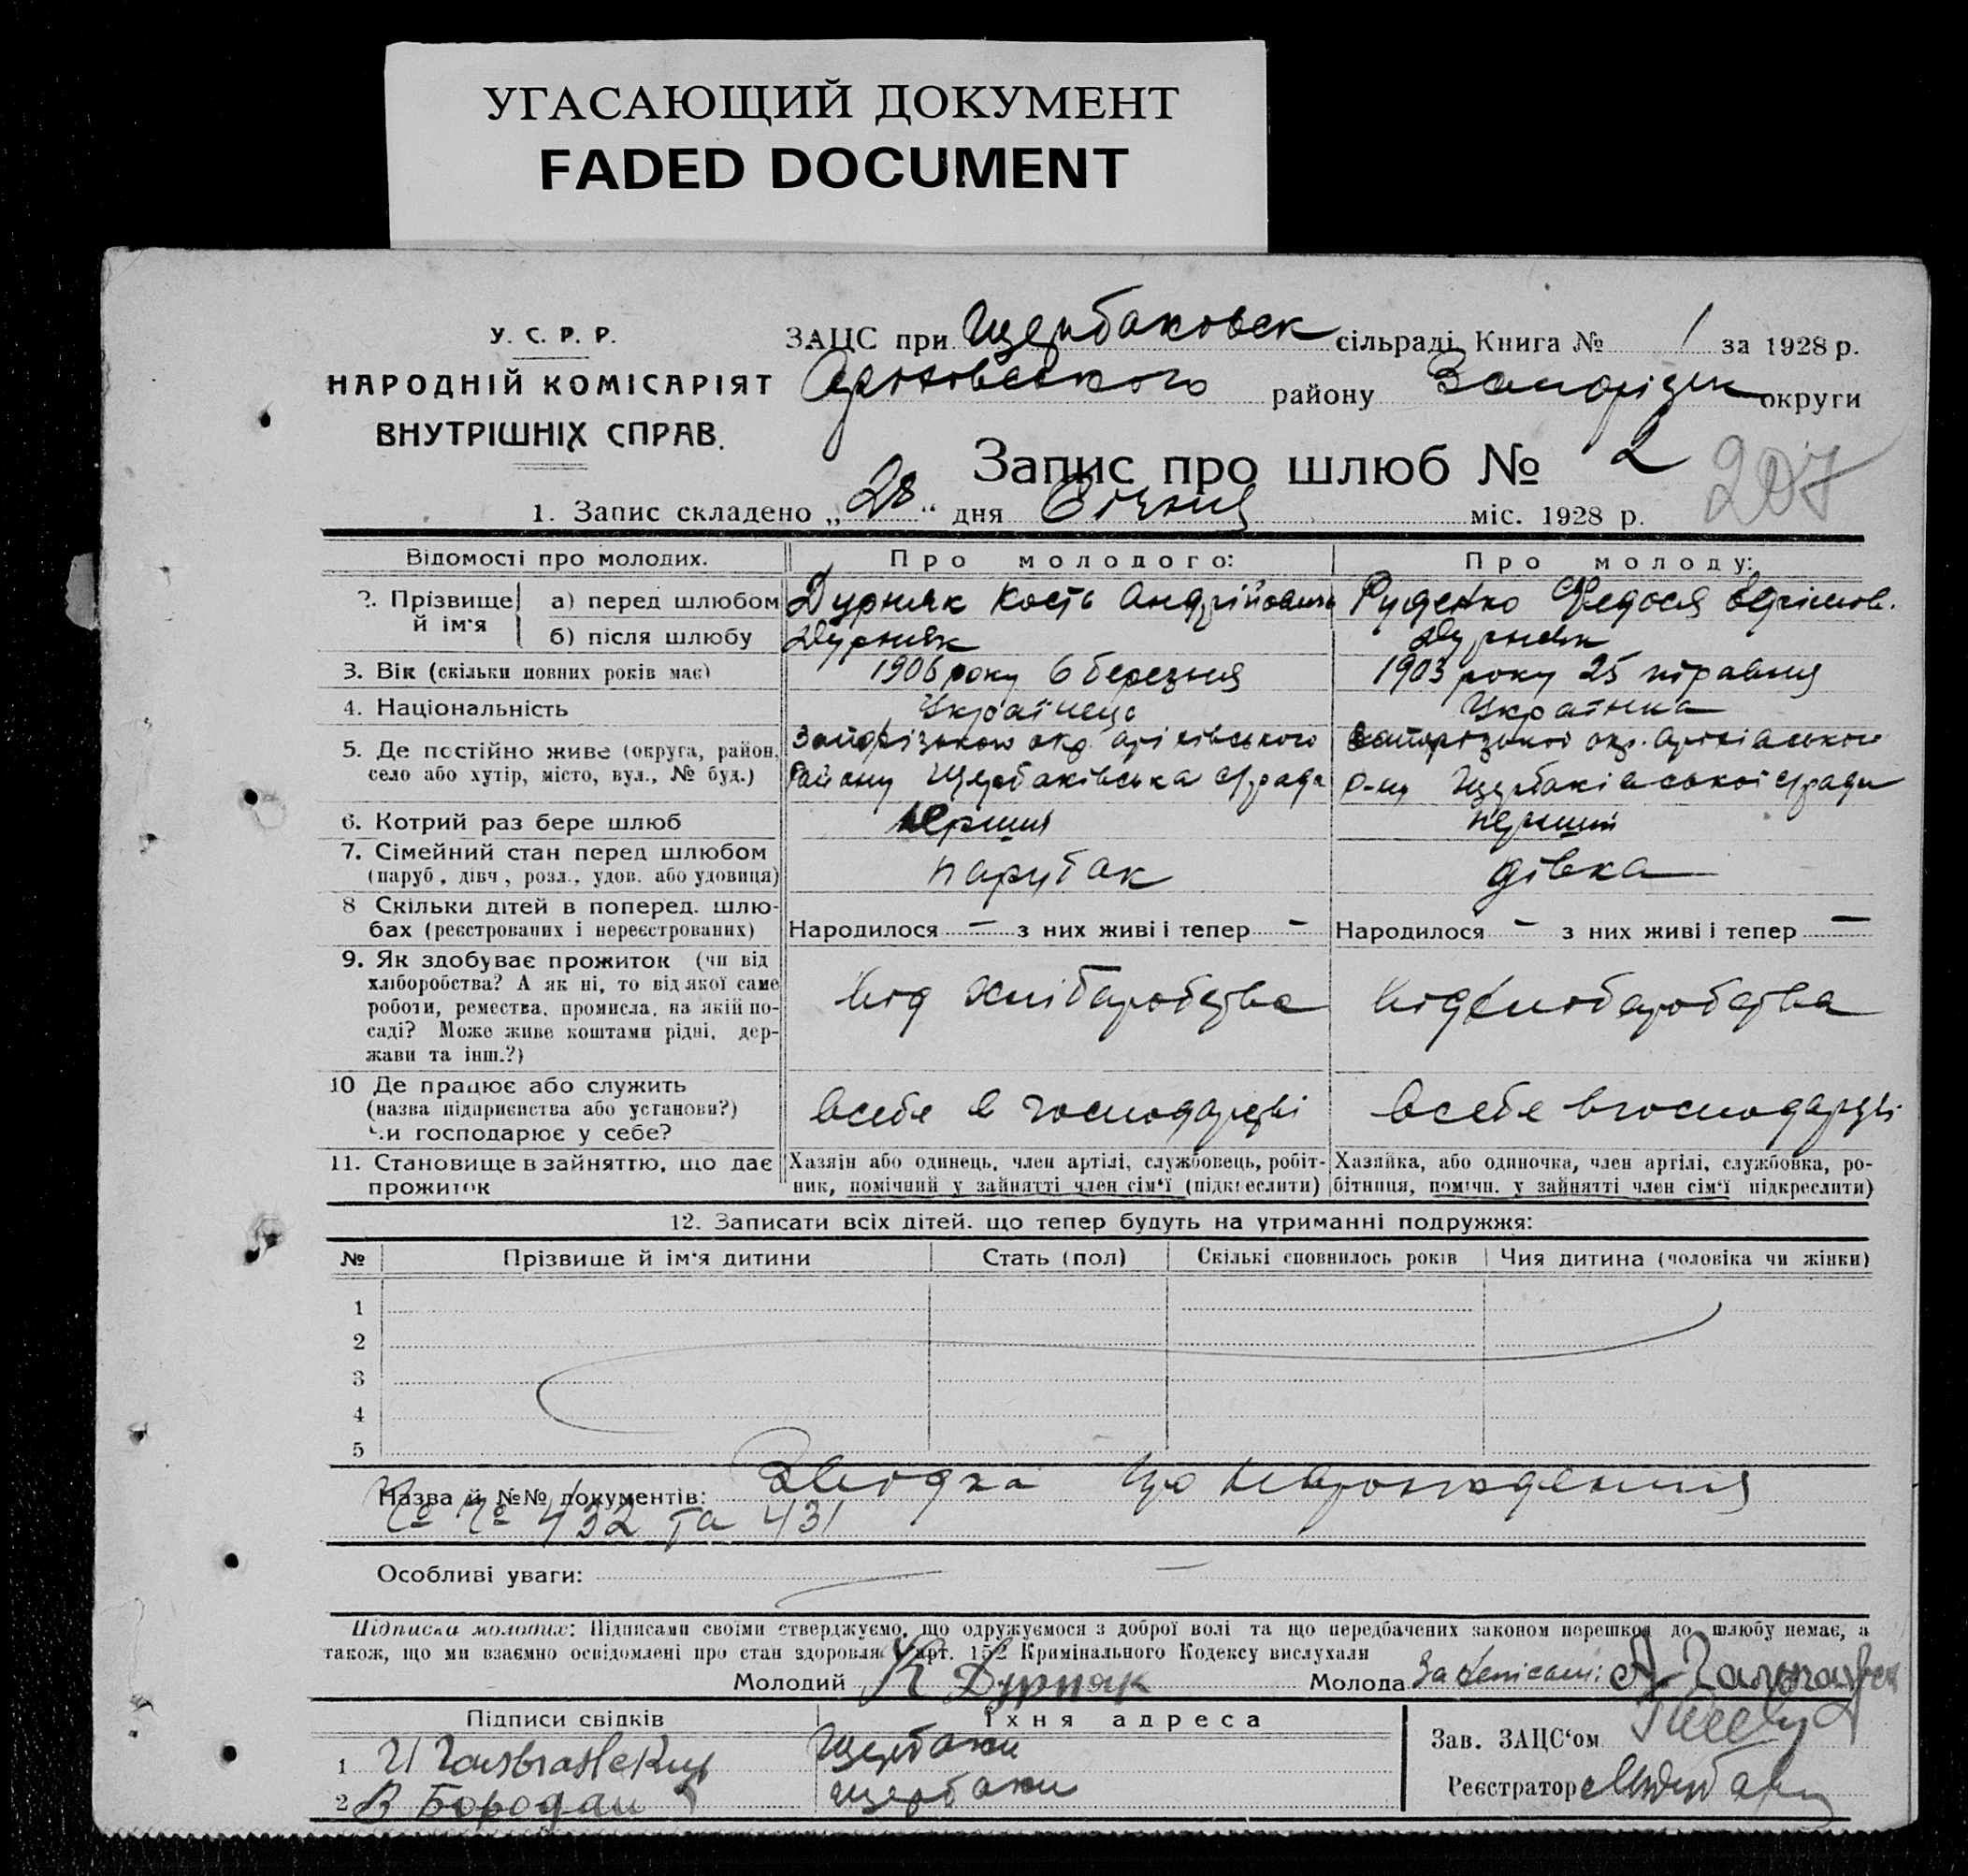 УГАСАЮЩИЙ ДОКУМЕНТ
FADED DOCUMENT
У. С. Р. Р.
НАРОДНІЙ КОМІСАРІЯТ
ВНУТРІШНІХ СПРАВ.
ЗАЦС при Щербаковск сільраді Книга № 1 за 1928 р.
району Запорізьк округи
Запис про шлюб № 2
207
1. Запис складено „28“ дня Січня міс. 1928 р.
Відомості про молодих.
Про молодого:
Про молоду:
2. Прізвище й ім'я
а) перед шлюбом
Дурняк Кость Андрійович
Руденко Федося
б) після шлюбу
Дурняк
Дурняк
3. Вік (скільки повних років має)
1906 року 6 березня
1903 року 25 травня
4. Національність
Українець
Українка
5. Де постійно живе (округа, район,
село або хутір, місто, вул., № буд.)
Запорізького окр. Оріхівського
Району Щербаківська с/рада
Запорізької окр. Оріхівського
р-ну Щербаківської с/ради
6. Котрий раз бере шлюб
перший
перший
7. Сімейний стан перед шлюбом
(паруб, дівч, розл., удов. або удовиця)
парубак
дівка
8 Скільки дітей в поперед. шлю-
бах (реєстрованих і нереєстрованих)
Народилося — з них живі і тепер —
Народилося — з них живі і тепер —
9. Як здобуває прожиток (чи від
хліборобства? А як ні, то від якої саме
роботи, ремества, промисла, на якій по-
саді? Може живе коштами рідні, дер-
жави та інш.?)
від хлібаробства
від хлібаробства
10 Де працює або служить
(назва підприємства або установи?)
Чи господарює у себе?
всебе в господарстві
всебе в господарстві
11. Становище в зайняттю, що дає
прожиток
Хазяін або одинець, член артілі, службовець, робіт-
ник, помічний у зайнятті член сім'ї (підкреслити)
Хазяйка, або одиночка, член артілі, службовка, ро-
бітниця, помічн. у зайнятті член сім'ї підкреслити)
12. Записати всіх дітей, що тепер будуть на утриманні подружжя:
№ Прізвище й ім'я дитини Стать (пол) Скількі сповнилось років Чия дитина (чоловіка чи жінки)
1
2
3
4
5
Назва й №№ документів: про
№ № 432 та 431
Особливі уваги: —
Підписка молодих: Підписами своїми стверджуємо, що одружуємося з доброї волі та що передбачених законом перешкод до шлюбу немає, а
також, що ми взаємно освідомлені про стан здоровля й арт. 152 Кримінального Кодексу вислухали
Молодий К Дурняк Молода
Підписи свідків
Їхня адреса
1
Щербаки
2 В Бородай
Щербаки
Зав. ЗАЦС'ом
Реєстратор